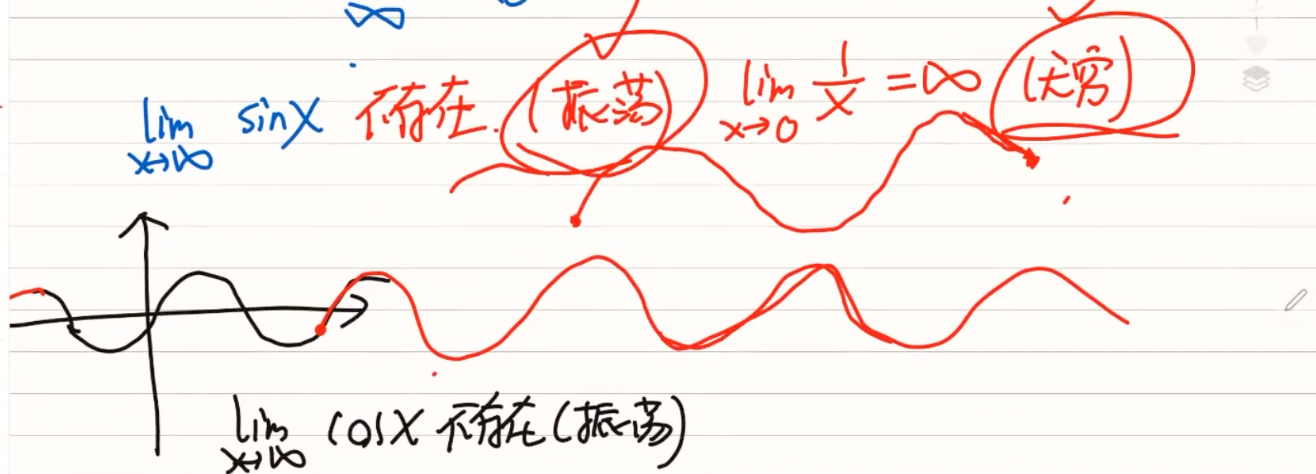 ∞
lim x→∞ sinx 不存在.(振荡) lim x→0 1/x = ∞ (无穷)
lim x→∞ cosx 不存在(振荡)